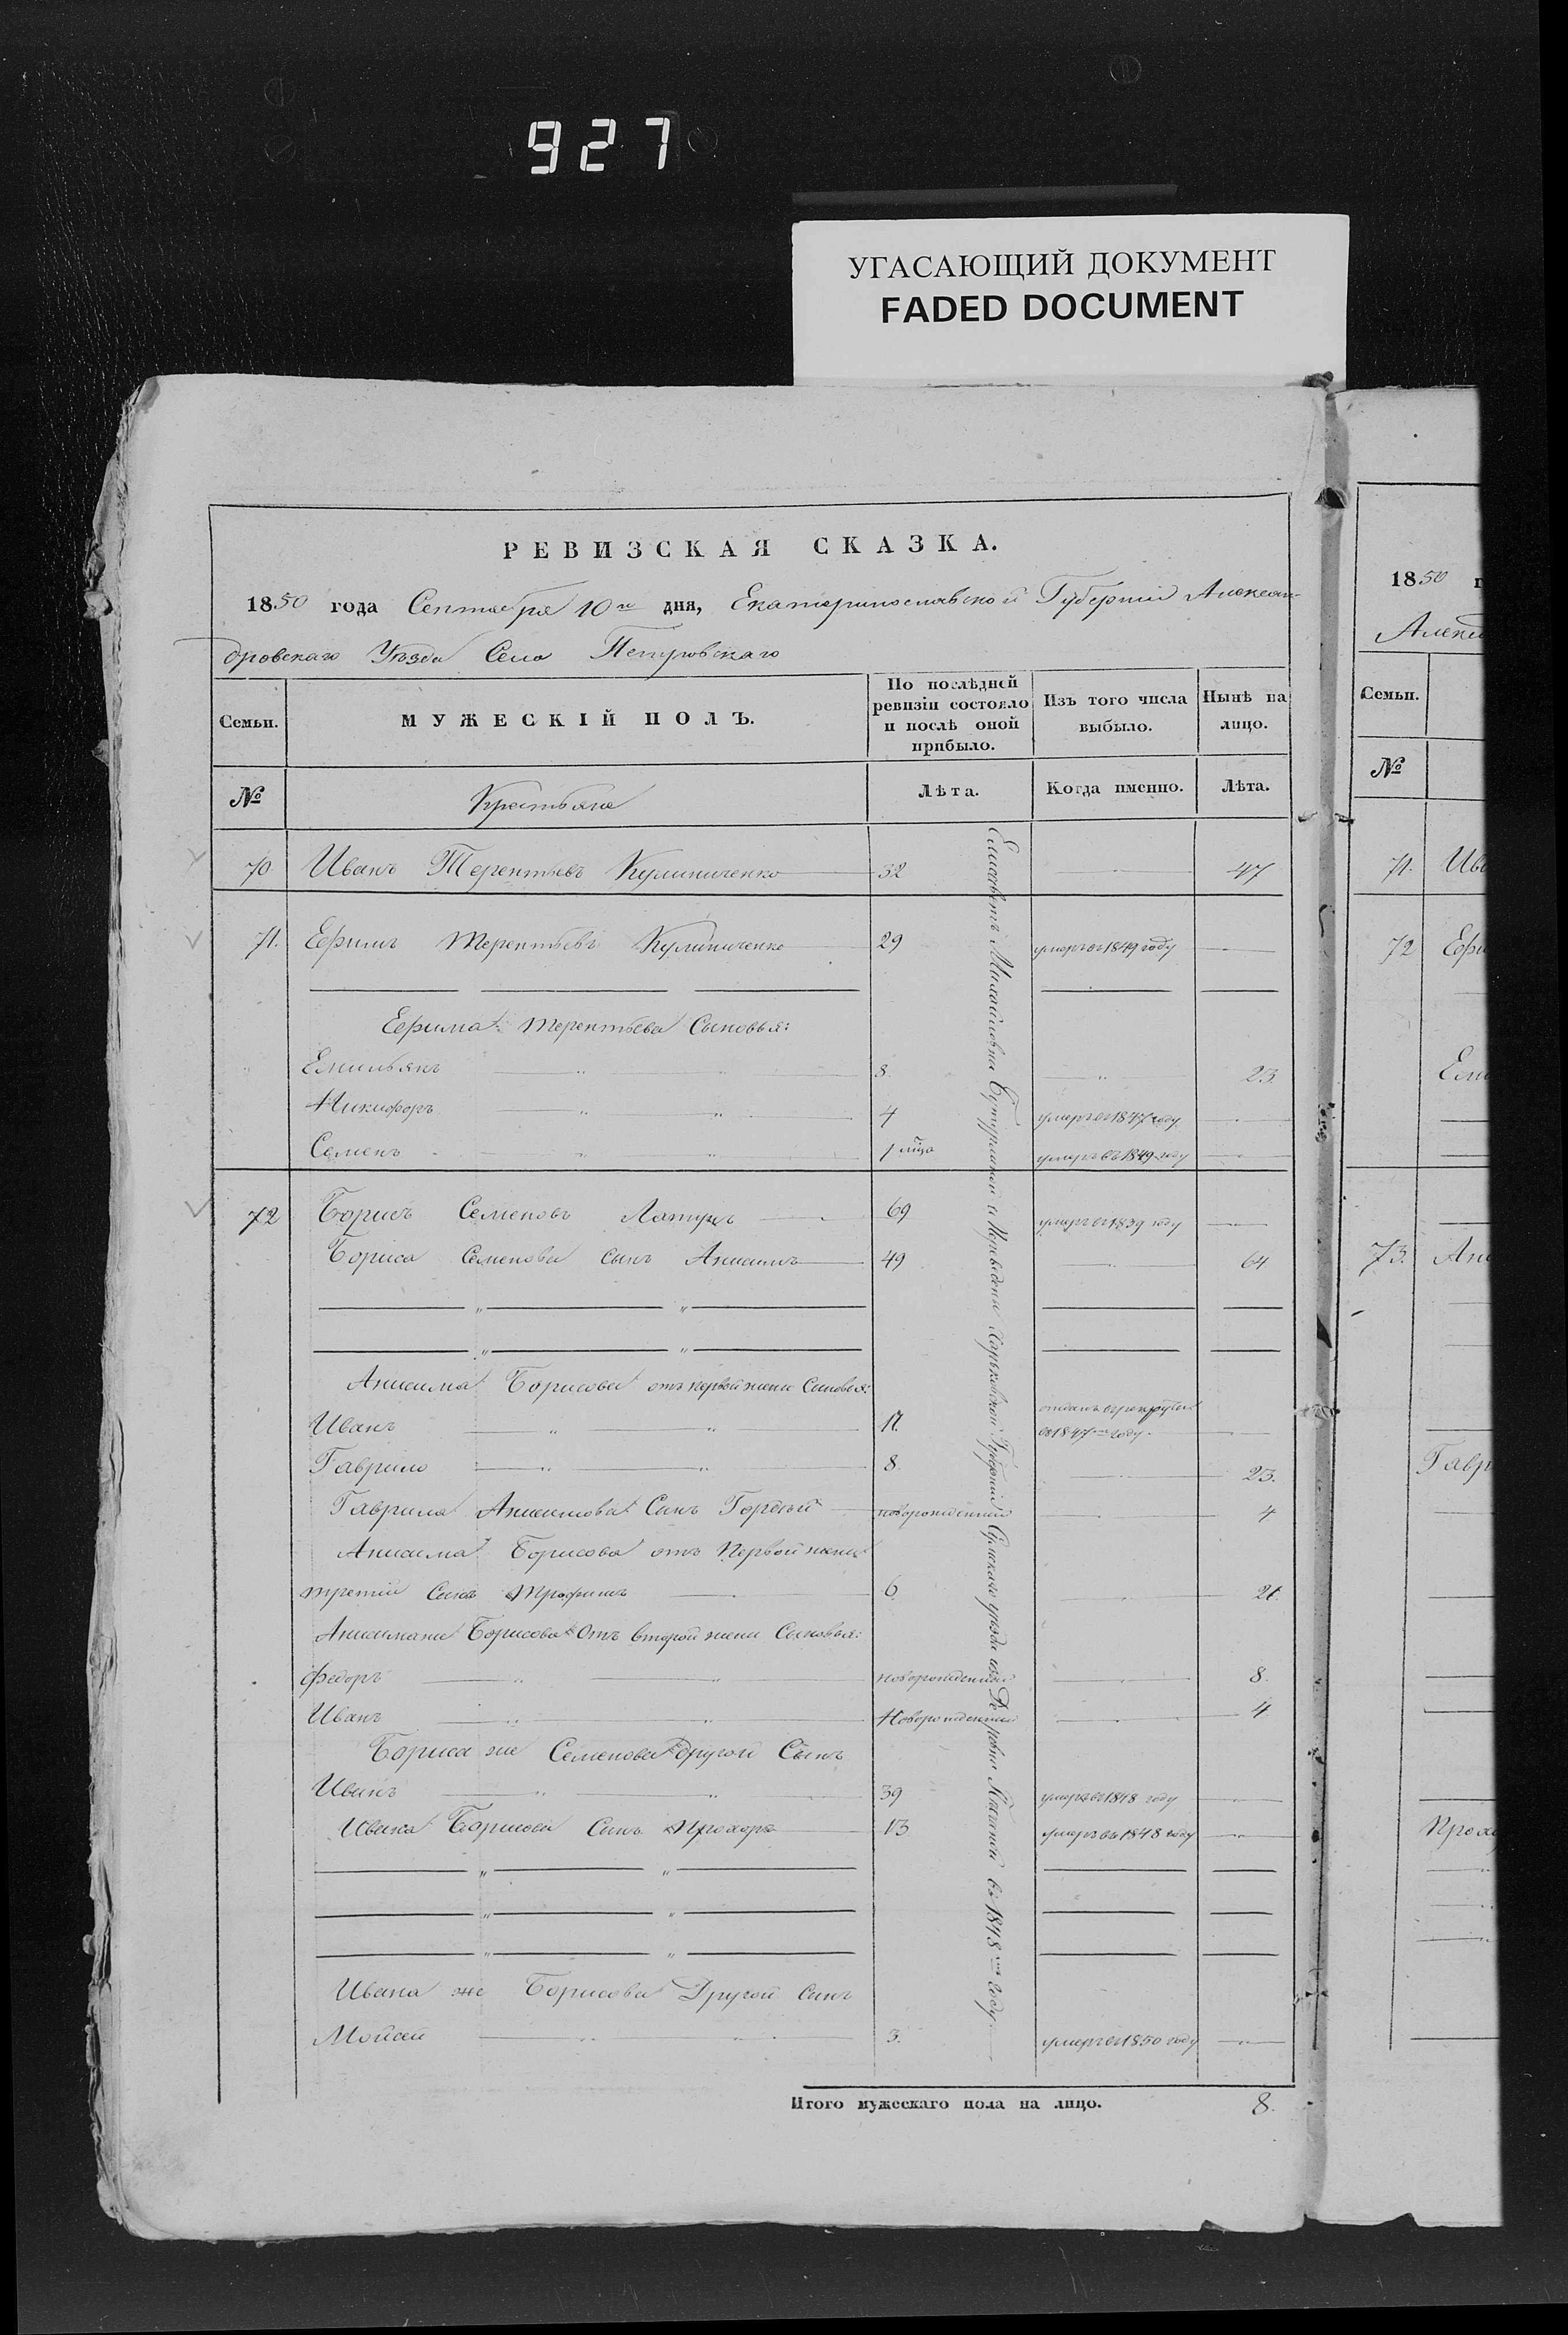 927
УГАСАЮЩИЙ ДОКУМЕНТ
FADED DOCUMENT
РЕВИЗСКАЯ СКАЗКА.
1850 года Сентября 10го дня, Екатеринославской Губернии Алексан-
дровскаго Уезда Села Петровскаго
Семьи.
МУЖЕСКІЙ ПОЛЪ.
По послѣдней ревизіи состояло и послѣ оной прибыло.
Изъ того числа выбыло.
Нынѣ на лицо.
№
Крестьяне
Лѣта.
Когда именно.
Лѣта.
70 Иванъ Терентьевъ Кулиниченко 32 47
71. Ефимъ Терентьевъ Кулиниченко 29 умеръ въ 1849 году
Ефима Терентьева Сыновья:
Емильянъ 8. 23.
Никифоръ 4 умеръ въ 1847 году
Семенъ 1 умеръ въ 1849 году
72 Борисъ Семеновъ 69 умеръ въ 1839 году
Бориса Семенова сынъ Анисимъ 49 64
Анисима Борисова отъ первой жены Сыновья:
Иванъ 17. отданъ въ рекруты
въ 1847 году.
Гаврило 8. 23.
Гаврила Анисимова Сынъ Гордѣй новорожденный 4
Анисима Борисова отъ Первой жены
третій Сынъ Трофимъ 6. 21.
Борисова отъ второй жены Сыновья:
Федоръ новорожденный 8.
Иванъ Новорожденный 4
Бориса же Семенова другой Сынъ
Иванъ 39 умеръ въ 1848 году
Ивана Борисова Сынъ Прохоръ 13 умеръ въ 1848 году
Ивана же Борисова Другой сынъ
Мойсей 3. умеръ въ 1850 году
Итого мужескаго пола на лицо. 8.
Михайловна Харьковской Губерніи уѣзда въ 1848 году.
1850 г
Алекса
Семьи.
№
71. Ива
72 Ефи
Еми
73. Ани
Гавр
Прохо